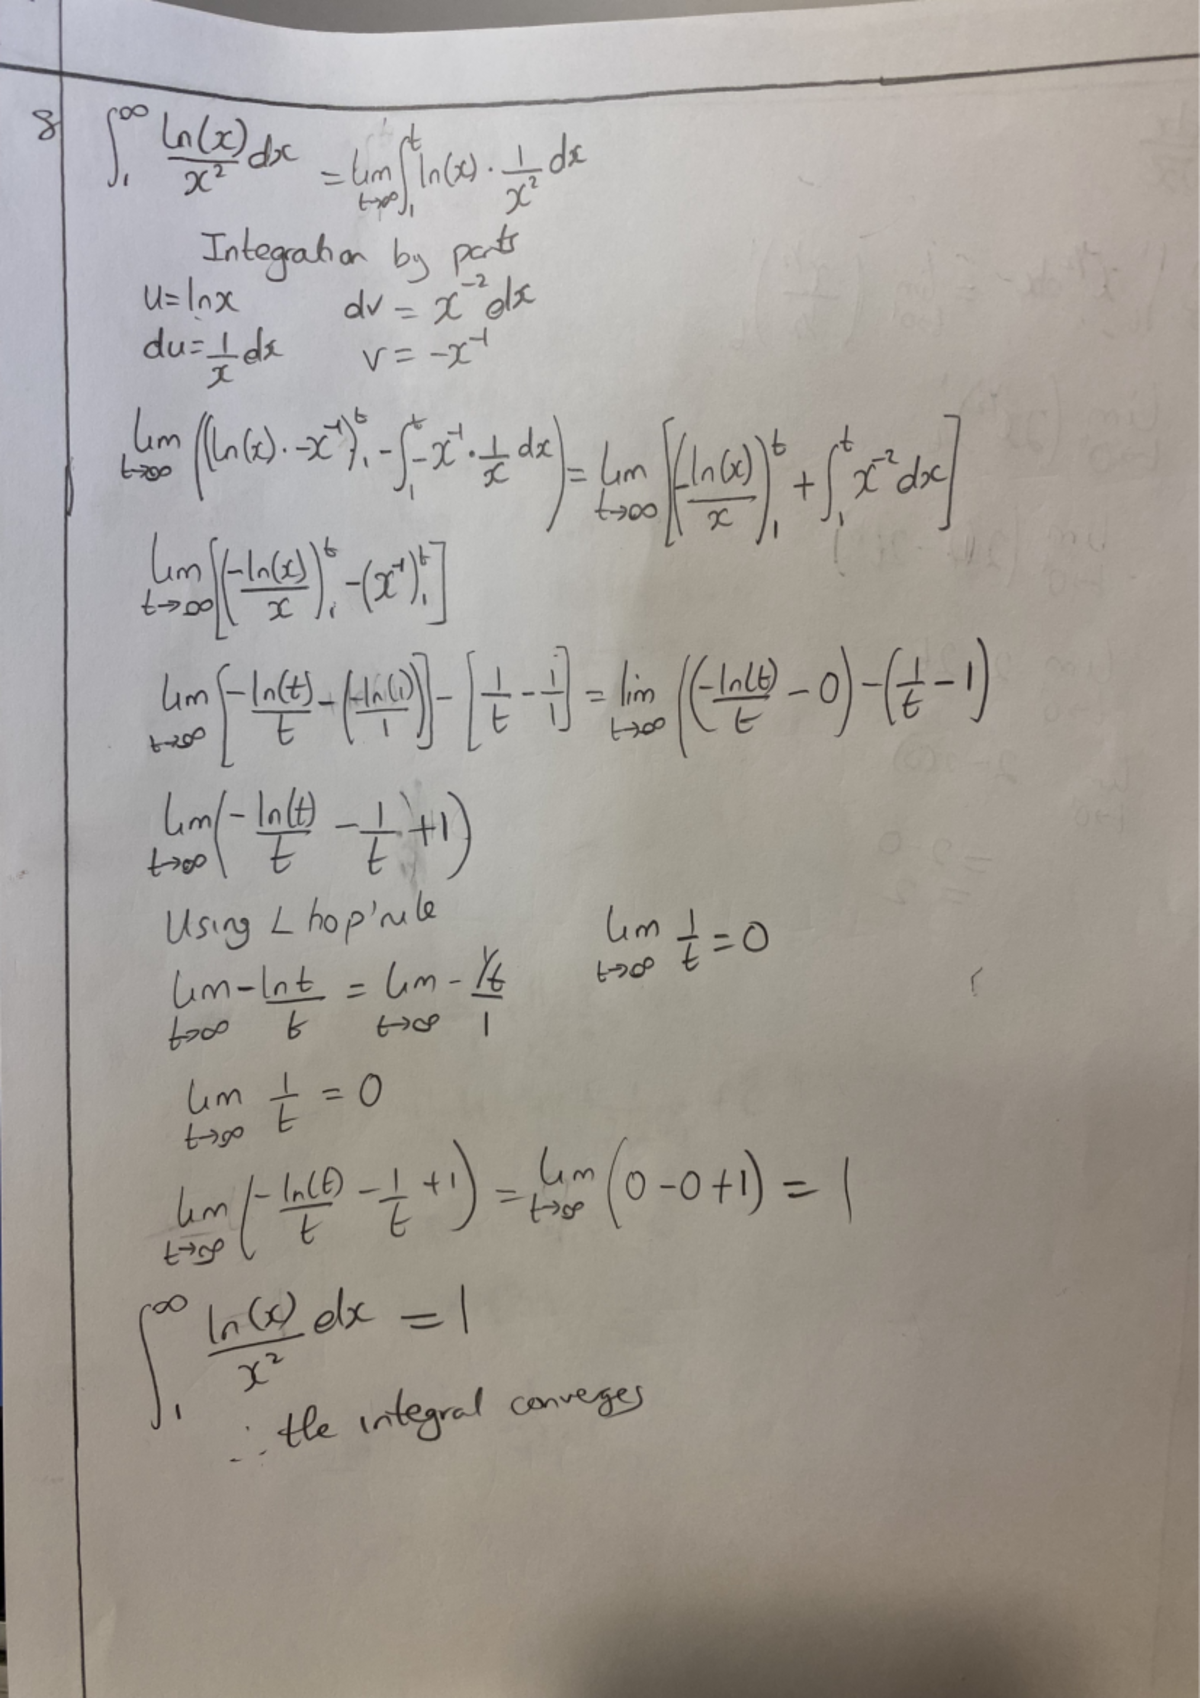 8 ∫₁^∞ ln(x)/x² dx = lim t→∞ ∫₁^t ln(x) · 1/x² dx
Integration by parts
u = lnx dv = x⁻² dx
du = 1/x dx v = -x⁻¹
lim t→∞ ((ln(x) · -x⁻¹)₁^t - ∫₁^t -x⁻¹ · 1/x dx) = lim t→∞ [(-ln(x)/x)₁^t + ∫₁^t x⁻² dx]
lim t→∞ [(-ln(x)/x)₁^t - (x⁻¹)₁^t]
lim t→∞ [-ln(t)/t - (-ln(1)/1)] - [1/t - 1/1] = lim t→∞ ((-ln(t)/t - 0) - (1/t - 1))
lim t→∞ (-ln(t)/t - 1/t + 1)
Using L hop'rule lim t→∞ 1/t = 0
lim t→∞ -lnt/t = lim t→∞ - (1/t)/1
lim t→∞ 1/t = 0
lim t→∞ (-ln(t)/t - 1/t + 1) = lim t→∞ (0 - 0 + 1) = 1
∫₁^∞ ln(x)/x² dx = 1
∴ the integral converges